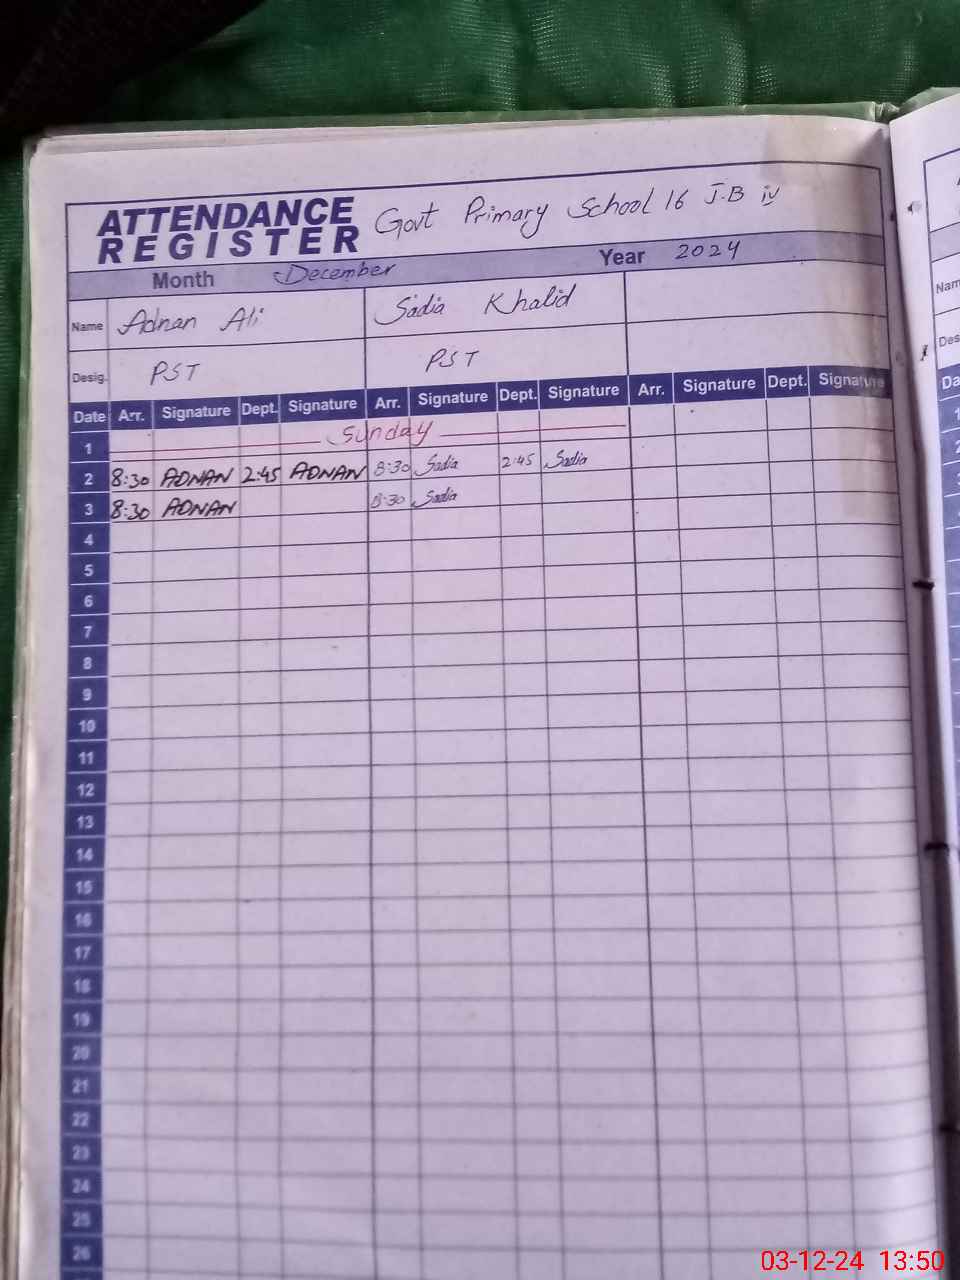 ATTENDANCE REGISTER Govt Primary School 16 J.B iv
Month December Year 2024
Name Adnan Ali Sadia Khalid
Desig. PST PST
Date Arr. Signature Dept. Signature Arr. Signature Dept. Signature Arr. Signature Dept. Signature
1 Sunday
2 8:30 ADNAN 2:45 ADNAN 8:30 Sadia 2:45 Sadia
3 8:30 ADNAN 8:30 Sadia
4
5
6
7
8
9
10
11
12
13
14
15
16
17
18
19
20
21
22
23
24
25
26
03-12-24 13:50